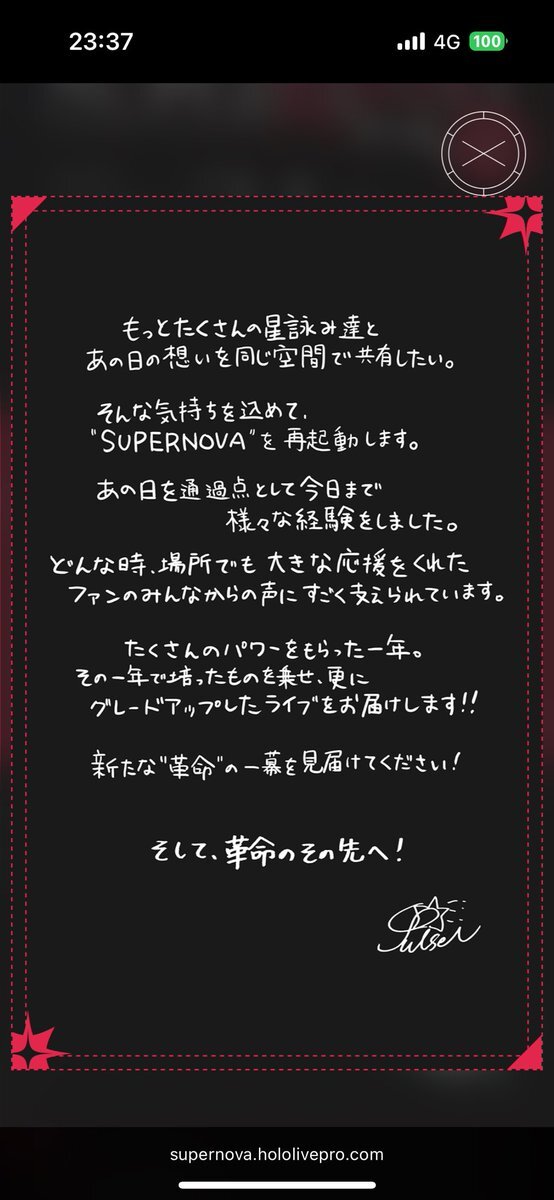 23:37
4G
100
もっとたくさんの星詠み達と
あの日の想いを同じ空間で共有したい。
そんな気持ちを込めて、
"SUPERNOVA"を再起動します。
あの日を通過点として今日まで
様々な経験をしました。
どんな時、場所でも大きな応援をくれた
ファンのみんなからの声にすごく支えられています。
たくさんのパワーをもらった一年。
その一年で培ったものを乗せ、更に
グレードアップしたライブをお届けします!!
新たな"革命"の一幕を見届けてください!
そして、革命のその先へ!
supernova.hololivepro.com